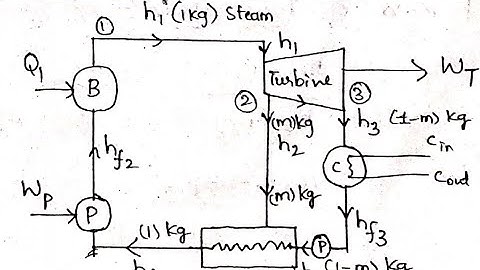 h₁ (1kg) Steam
①
h₁
Q₁
B
Turbine
W_T
②
③
(m)kg
h₃
(1-m) kg
h₂
C_in
h_f2
C
C_out
W_P
P
(m)kg
h_f3
(1) kg
P
(1-m) kg